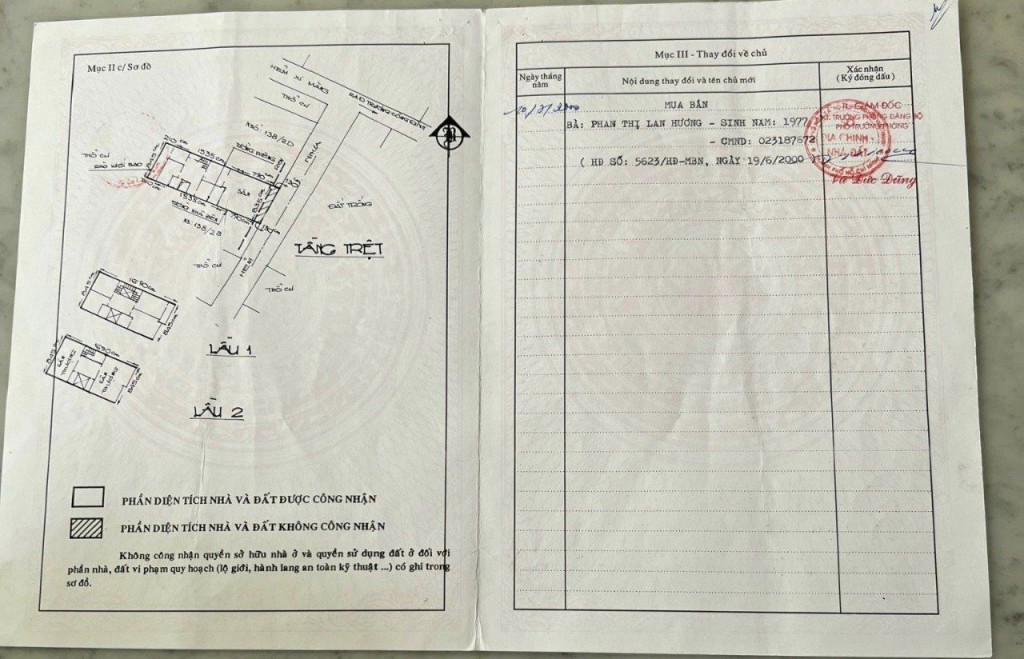 Mục II c/ Sơ đồ
HẺM XI MĂNG
THỔ CƯ
NHỰA
THỔ CƯ
SÂN
ĐẤT TRỐNG
TẦNG TRỆT
THỔ CƯ
HẺM
THỔ CƯ
LẦU 1
LẦU 2
PHẦN DIỆN TÍCH NHÀ VÀ ĐẤT ĐƯỢC CÔNG NHẬN
PHẦN DIỆN TÍCH NHÀ VÀ ĐẤT KHÔNG CÔNG NHẬN
Không công nhận quyền sở hữu nhà ở và quyền sử dụng đất ở đối với
phần nhà, đất vi phạm quy hoạch (lộ giới, hành lang an toàn kỹ thuật ...) có ghi trong
sơ đồ.
Mục III - Thay đổi về chủ
Ngày tháng
năm
Nội dung thay đổi và tên chủ mới
Xác nhận
(Ký đóng dấu)
MUA BÁN
BÀ: PHAN THỊ LAN HƯƠNG - SINH NĂM: 1977
- CMND: 023187672
( HĐ SỐ: 5623/HĐ-MBN, NGÀY 19/6/2000
GIÁM ĐỐC
TRƯỞNG PHÒNG ĐĂNG BỘ
PHÓ TRƯỞNG PHÒNG
ĐỊA CHÍNH
NHÀ ĐẤT
Vũ Đức Dũng